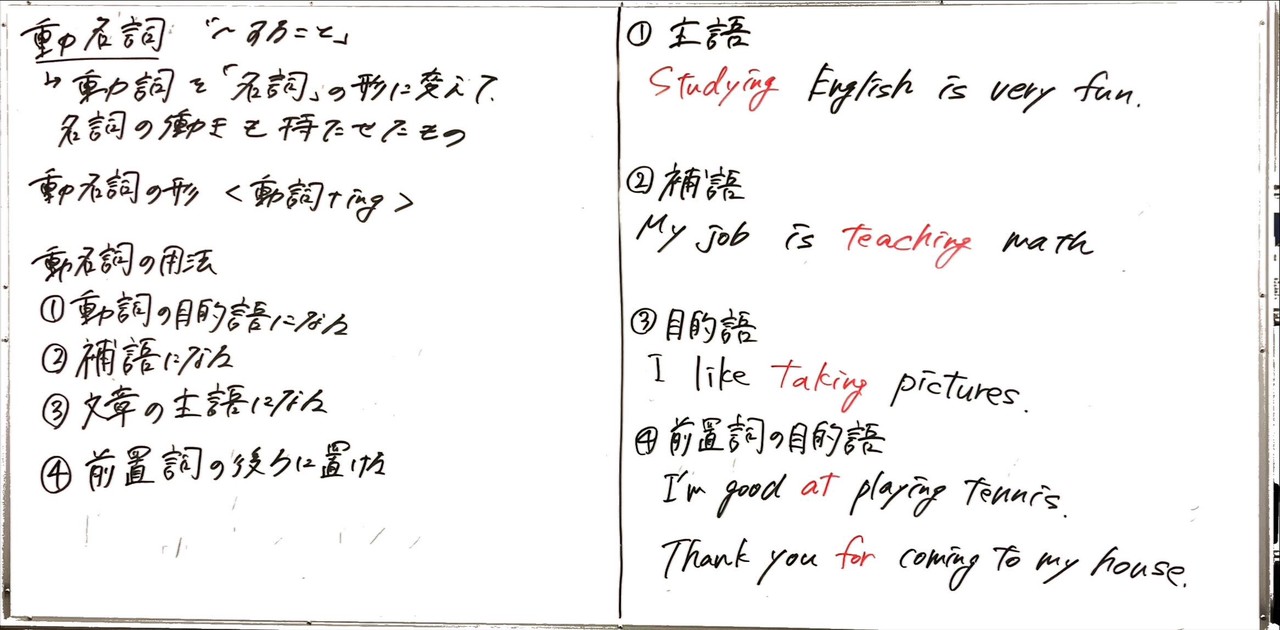 動名詞 「〜すること」
↳ 動詞を「名詞」の形に変えて、
名詞の働きを持たせたもの
動名詞の形 <動詞+ing>
動名詞の用法
①動詞の目的語になる
②補語になる
③文章の主語になる
④前置詞の後ろに置ける
① 主語
Studying English is very fun.
②補語
My job is teaching math
③目的語
I like taking pictures.
④前置詞の目的語
I'm good at playing tennis.
Thank you for coming to my house.